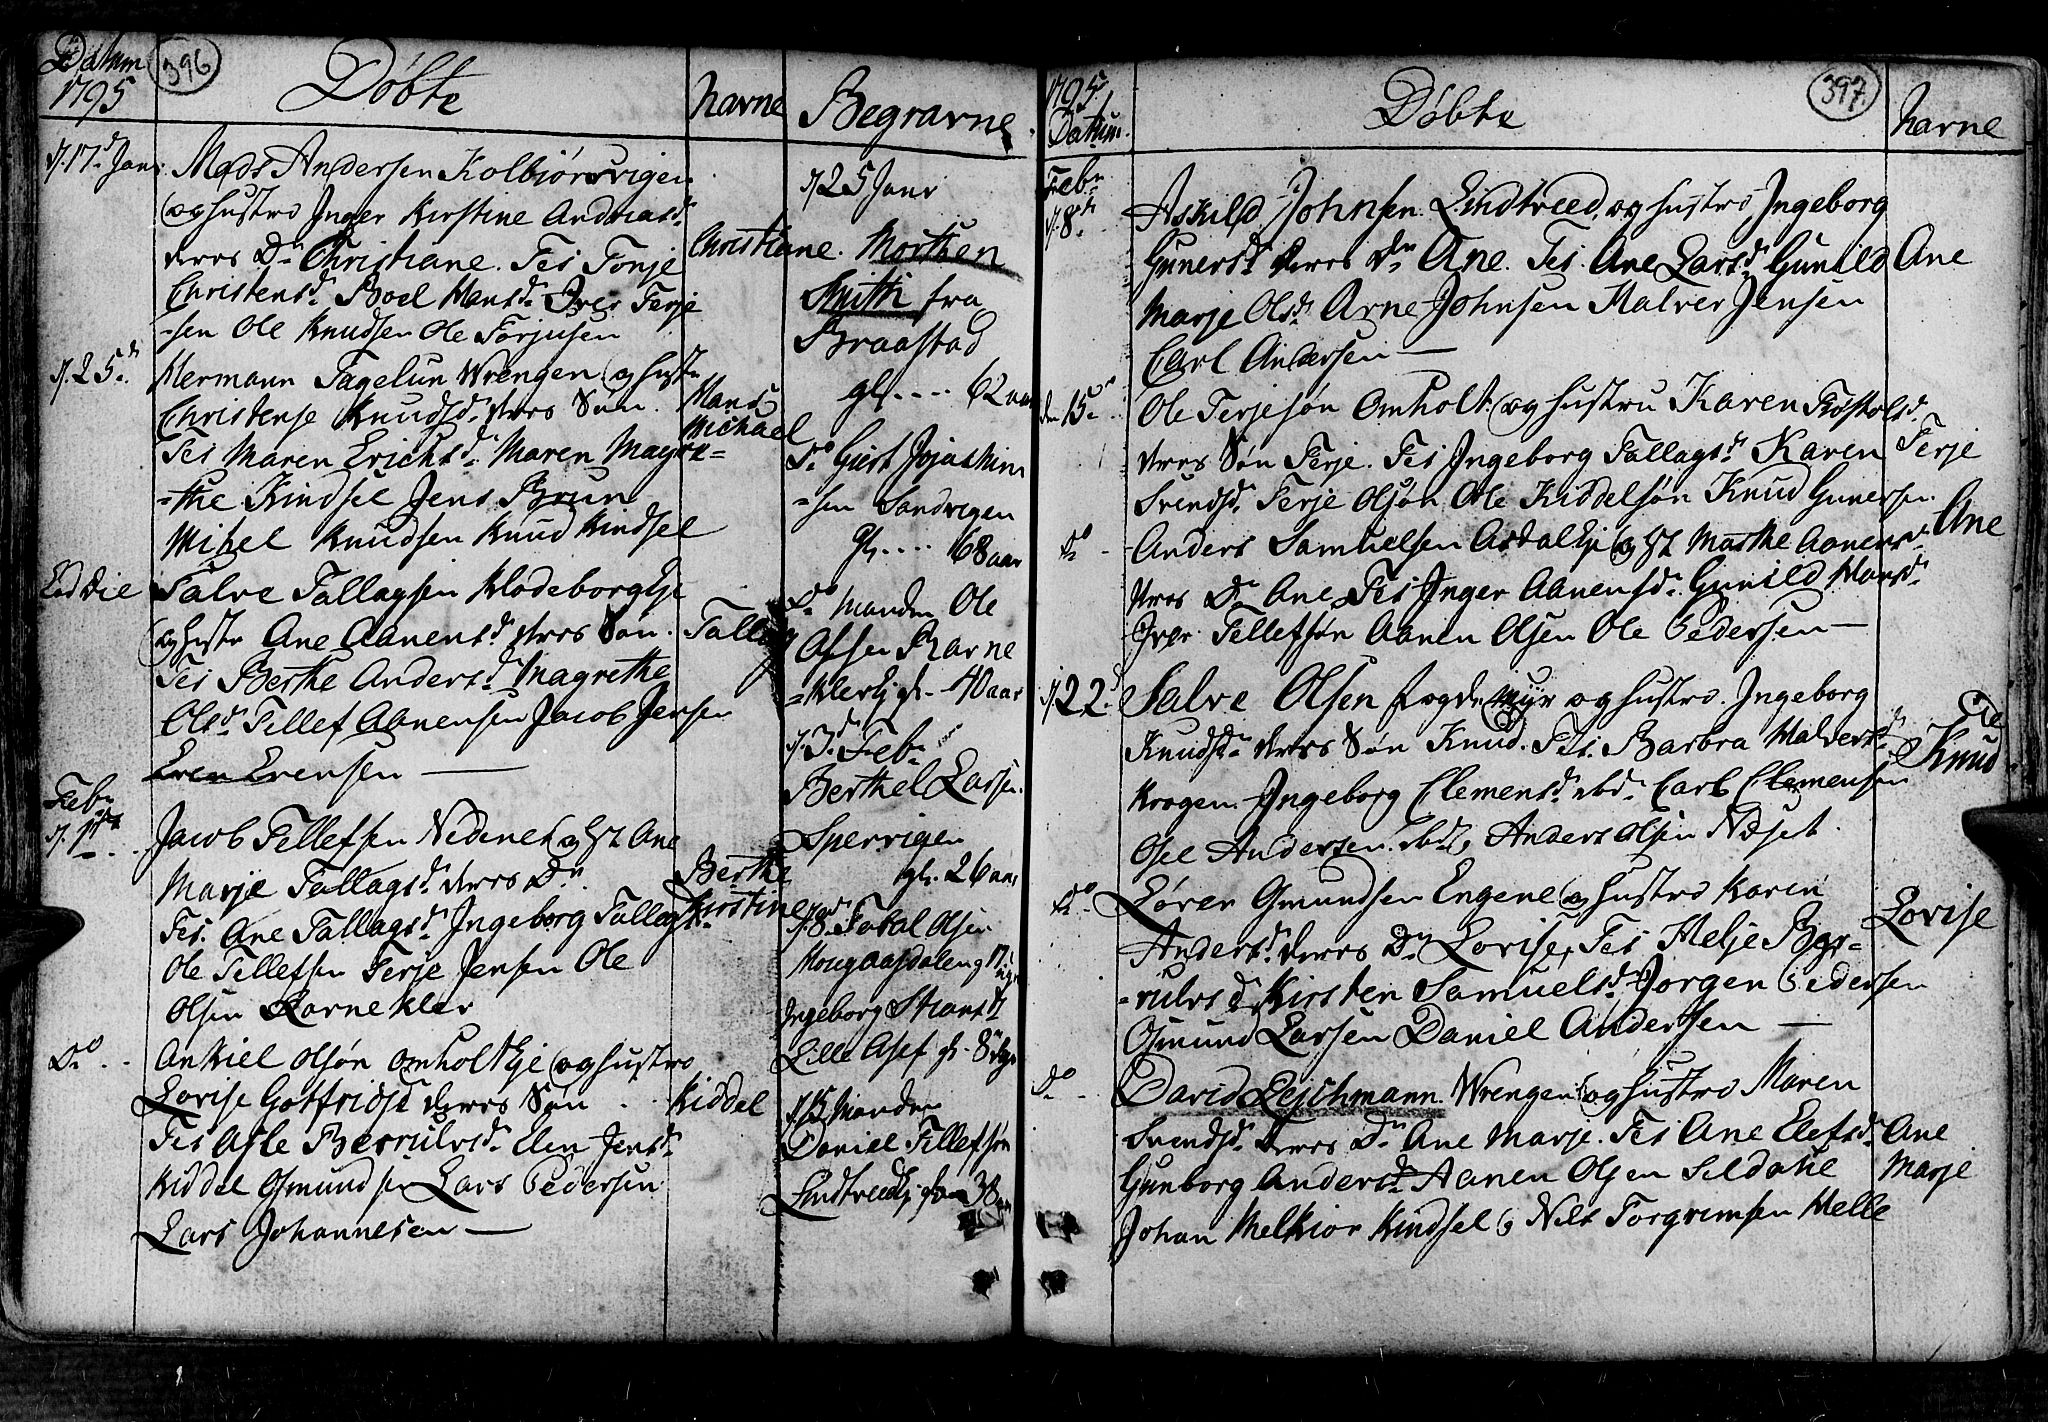 Datum
1795
396
Døbte
Navne
Begravne
d. 17d Janr
Mads Andersen Kolbiørnsvigen
og hustro Inger Kirstine Andreasd.
deres Dr. Christiane. Tes Tonje
Christensd. Boel Hansd. Iver Terje
=sen Ole Knudsen Ole Torjusen
Christiane.
d. 25d.
Hermann Tagelun Wrengen og hustr
Christense Knudsd. deres Søn.
Tes Maren Erichsd. Maren Magre=
=the Kindsel Jens Brun
Mikel Knudsen Knud Kindsel
Hans
Michael
Eod Die
Salve Tallagsen Klodeborg Eje
og hustr Ane Aanensd. deres Søn.
Tes Berthe Andersd. Magrethe
Olsd. Tellef Aanensen Jacob Jensen
Even Evensen
Tallag
Febr
d. 1ste
Jacob Tellefsen Nedenes og H. Ane
Marje Tallagsd. deres Dr.
Tes. Ane Tallagsd. Ingeborg Tallagsd.
Ole Tellefsen Terje Jensen Ole
Olsen Barnekler
Berthe
Kirstine
Do.
Ankiel Olsøn Omholt Eje og hustro
Lovise Gotfridsd deres Søn
Tes Asle Berulvsd. Elen Jensd.
Kiddel Osmundsen Lars Pedersen
Lars Johannesen
Kiddel
d. 25 Janr
Morthen
Smith fra
Braastad
gl. .... 62 aar
Do Giert Jojaskim
=sen Sandvigen
gl. .... 68 aar
Do Manden Ole
Olsen Barne
=klerkj gl. - 40 aar
d. 3d Febr
Berthel Larsen.
Spervigen
gl. 26 aar
d. 8. Total Olsen
Hougaasdalen g 17
Ingeborg
Lille Asef gl. 8
d. 15 Manden
Daniel Tellefsøn
Lindtveedkj gl. 38 aar
1795
Datum.
Døbte
397
Navne
Febr.
d. 8de
Askild Johnsen. Lindtveed, og hustro Ingeborg
Gunersd. deres Dr. Ane. Tes. Ane Larsd. Gunild
Marje Olsd. Arne Johnsen Halver Jensen
Carl Andersen
Ane
den 15de
Ole Terjesøn Omholt. og hustru Karen
deres Søn Terje. Tes Ingeborg Tallagsd. Karen
Svendsd. Terje Olsøn Ole Kiddelsøn Knud Gunersen.
Terje
Do
Anders Samuelsen Asdal Ej og H. Marthe Aanensd.
deres Dr. Ane Tes Inger Aanensd. Gunild Hansd.
Iver Tellefsøn Aanen Olsen Ole Pedersen
Ane
d. 22d.
Salve Olsen Fogdemyr og hustro. Ingeborg
Knudsd. deres Søn Knud. Tes. Barbra Halversd.
Krogen. Ingeborg Clemensd. ibd. Carl Clemensen
Osel Andersen. ibd. Anders Olsen Næset.
Knud
Do
Sører Gmundsen Engene og hustro Karen
Andersd. deres Dr. Lovise, Tes Helje Ber=
=rulvsd. Kirsten Samuelsd. Jorgen Pedersen
Osmund Larsen Daniel Andersen
Lovise
Do
David Lejchmann. Wrengen og hustro Maren
Svendsd. deres Dr. Ane Marje. Tes Ane Elefsd.
Gunborg Andersd. Aanen Olsen Seldalie
Johan Melkior Kindsel, Nels Torgrimsen Helle
Ane
Marje